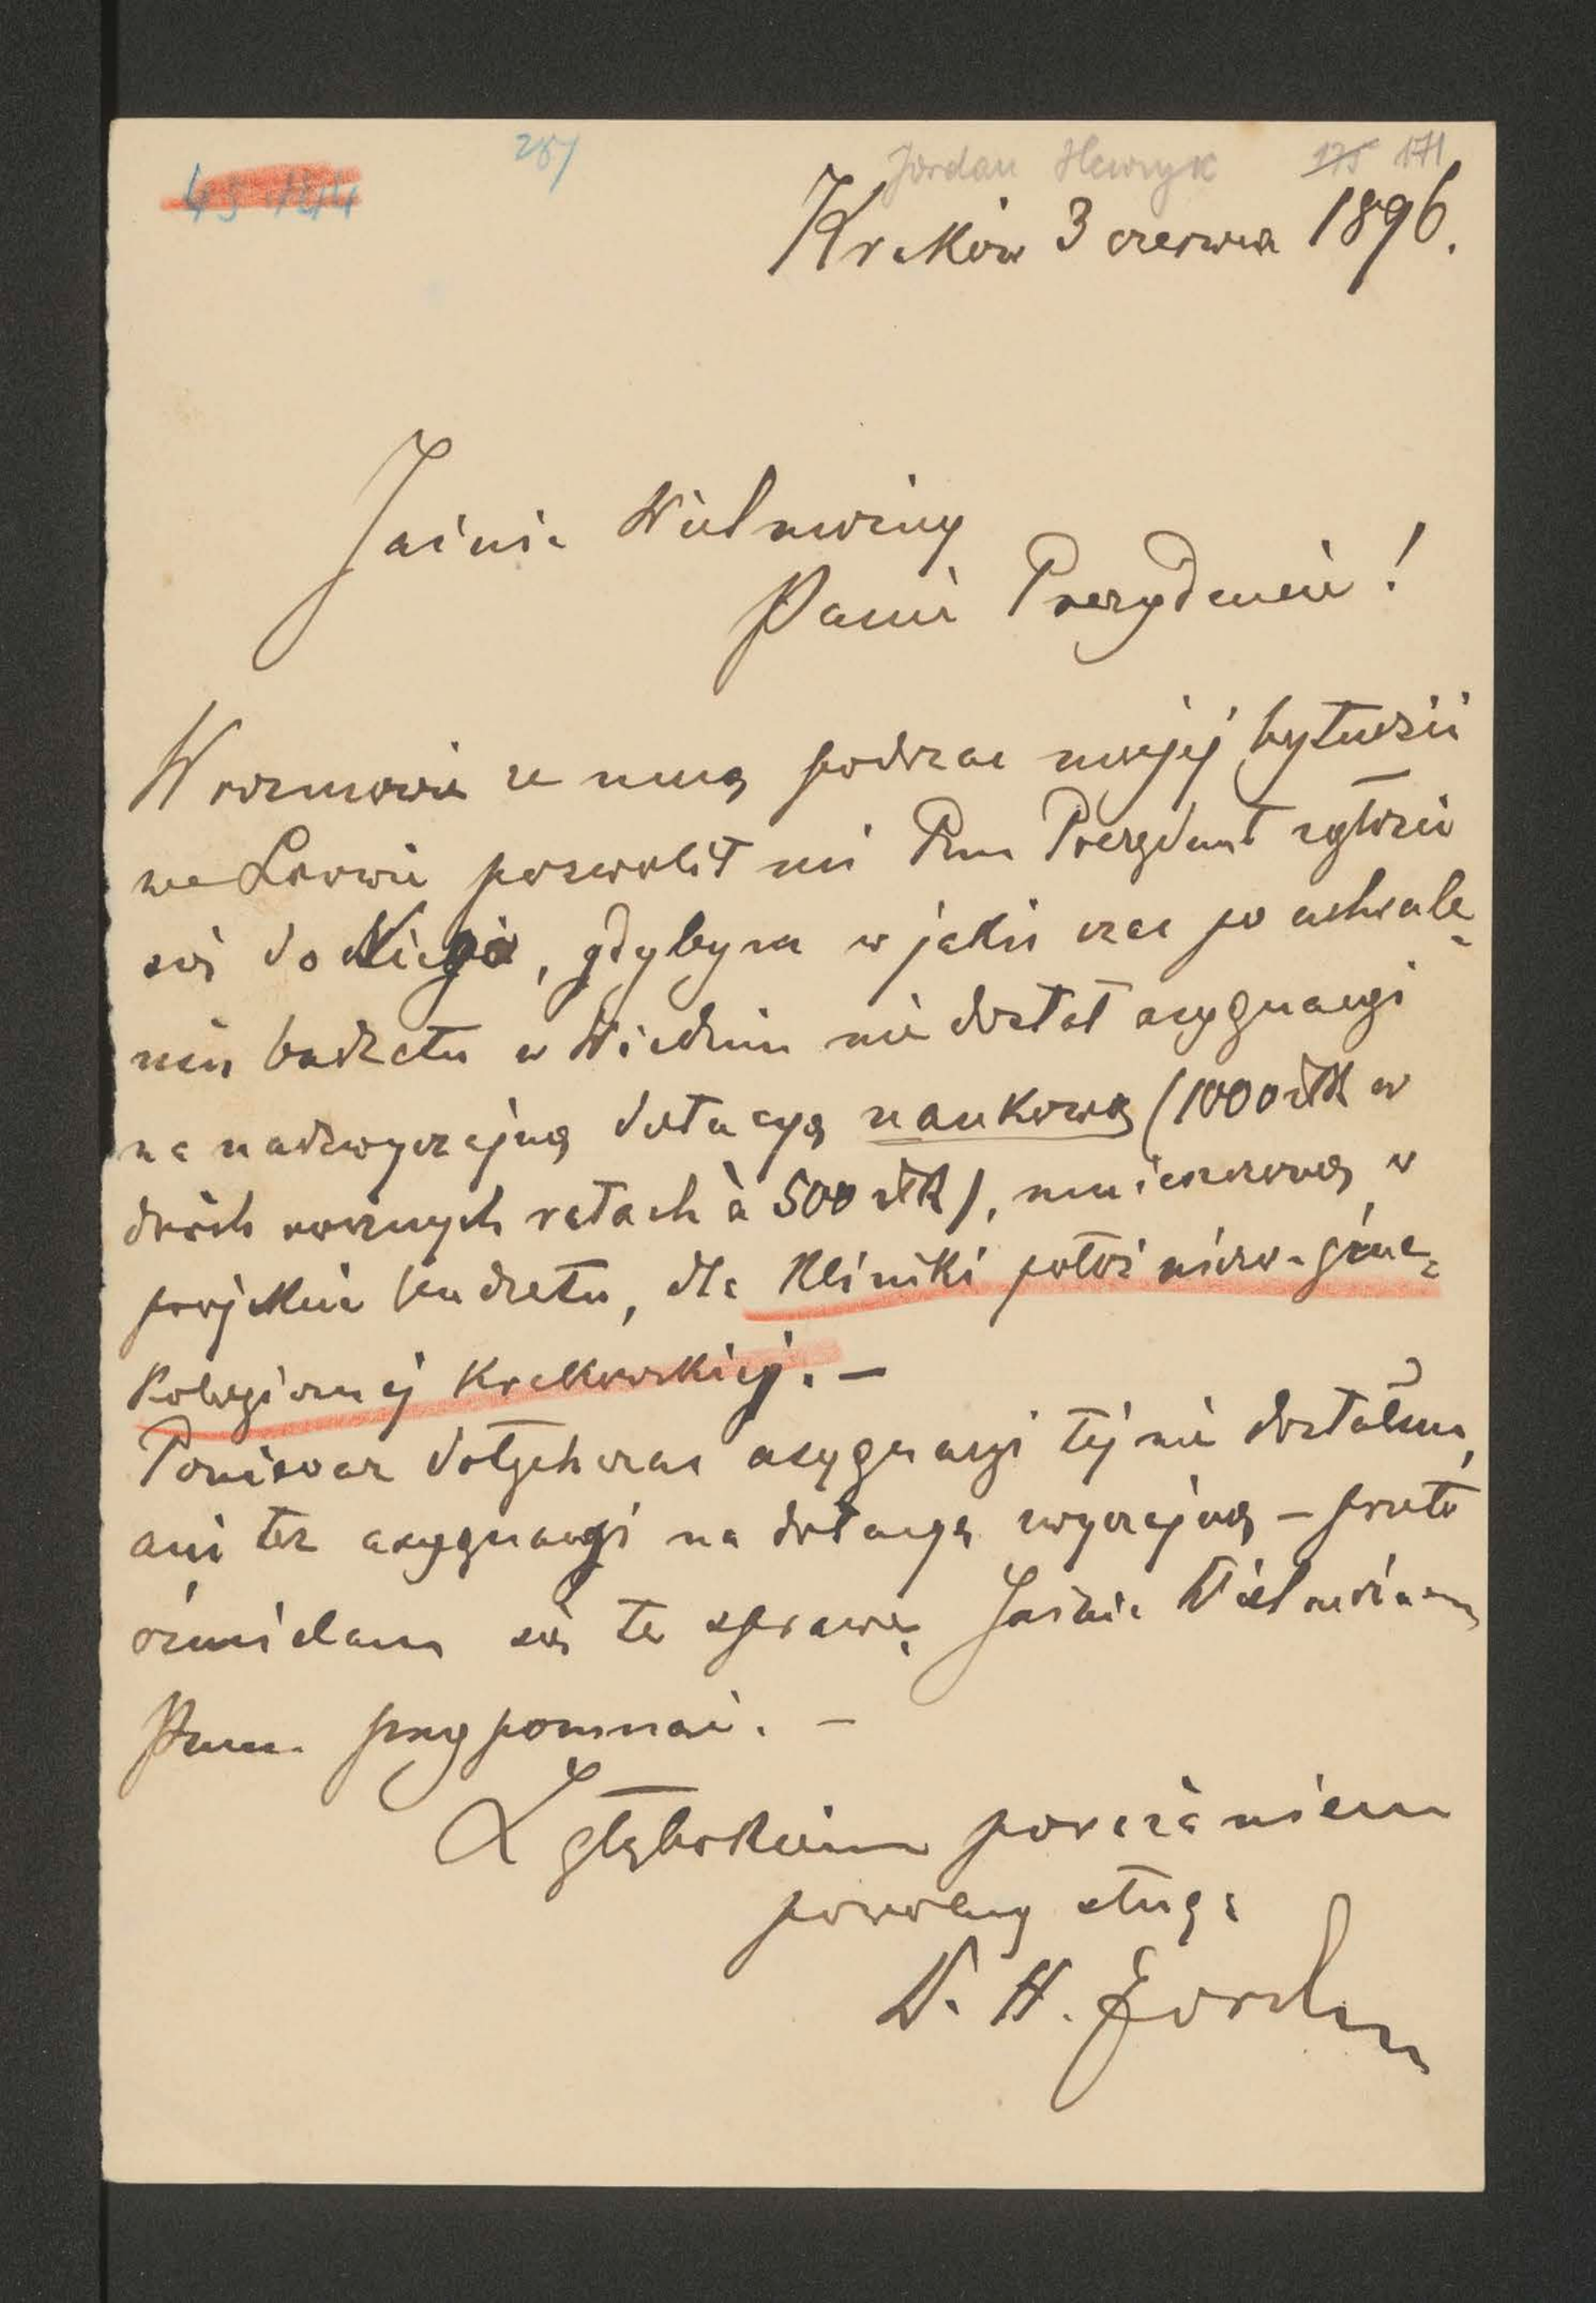 287 Jordan Henryk 175 171
Kraków 3 czerwca 1896.
Jaśnie Wielmożny
Panie Prezydencie!
W rozmowie ze mną podczas mojej bytności
we Lwowie pozwolił mi Pan Prezydent zgłosić
się do Niego, gdybym w jakiś czas po uchwale-
niu budżetu w Wiedniu nie dostał asygnacyi
na nadzwyczajną dotacyą naukową (1000 złr w
dwóch rocznych ratach à 500 złr), umieszczoną w
projekcie budżetu, dla Kliniki położniczo-gine-
kologicznej Krakowskiej. –
Ponieważ dotychczas asygnacyi tej nie dostałem,
ani też asygnacyi na dotacyą zwyczajną – przeto
ośmielam się tę sprawę Jaśnie Wielmożnemu
Panu przypomnąć. –
Z głębokiem poważaniem
powolny sługa
Dr. H. Jordan